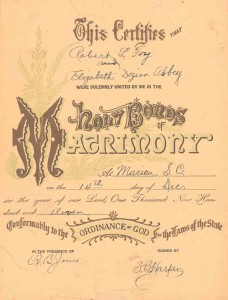 This Certifies THAT
Robert L. Foy
and
Elizabeth Abbey
WERE SOLEMNLY UNITED BY ME IN THE
HOLY BONDS
OF
MATRIMONY
At Marion S.C.
on the 14th day of Dec.
in the year of our Lord, One Thousand Nine Hun
dred and eleven
Conformably to the ORDINANCE OF GOD & the Laws of the State
IN THE PRESENCE OF
SIGNED BY
R.B. Jones
Harper